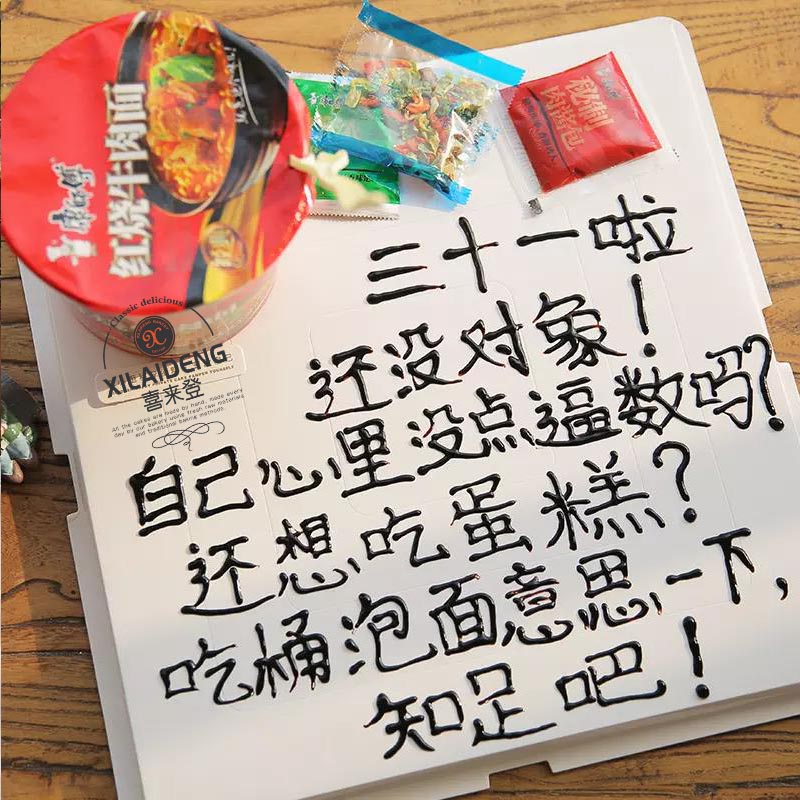 康师傅
红烧牛肉面
秘制
肉酱包
Classic delicious
XILAIDENG
喜来登
All the cakes are made by hand, made every
day by our bakery using fresh raw materials
and traditional baking methods.
三十一啦
还没对象！
自己心里没点逼数吗？
还想吃蛋糕？
吃桶泡面意思意思一下，
知足吧！